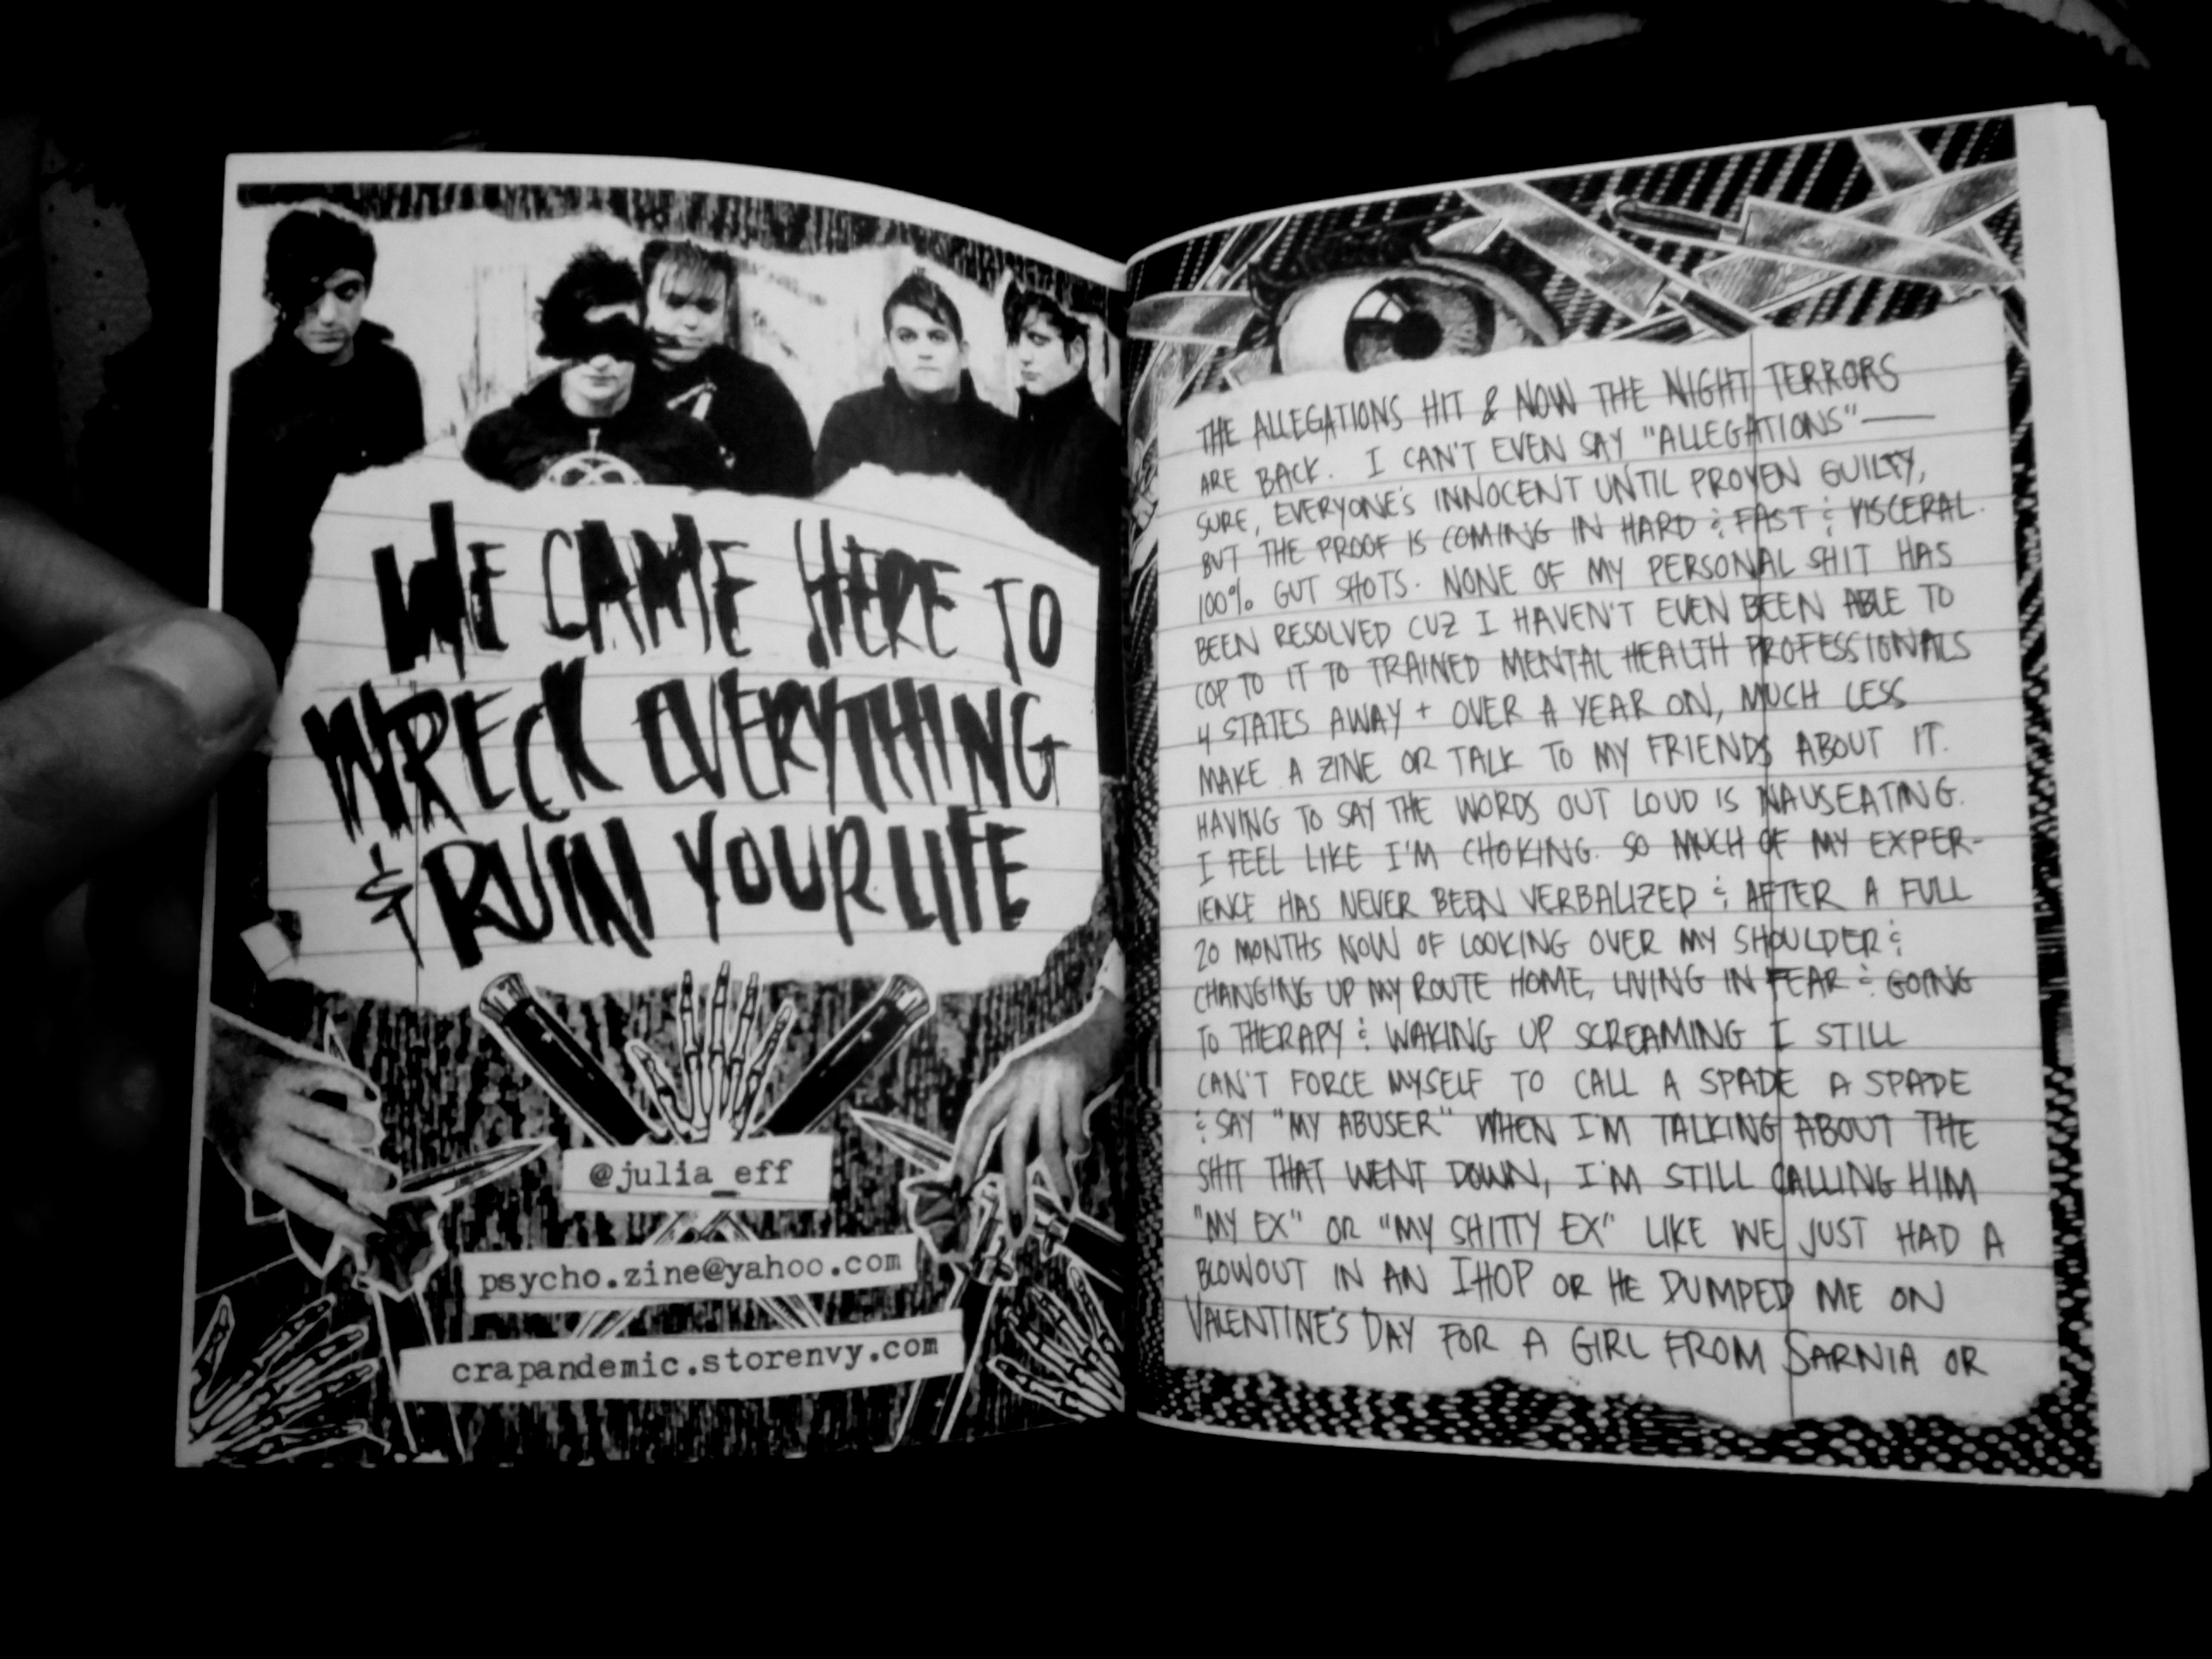 WE CAME HERE TO
WRECK EVERYTHING
& RUIN YOUR LIFE
@julia_eff
psycho.zine@yahoo.com
crapandemic.storenvy.com
THE ALLEGATIONS HIT & NOW THE NIGHT TERRORS
ARE BACK. I CAN'T EVEN SAY "ALLEGATIONS"—
SURE, EVERYONE'S INNOCENT UNTIL PROVEN GUILTY,
BUT THE PROOF IS COMING IN HARD & FAST & VISCERAL.
100% GUT SHOTS. NONE OF MY PERSONAL SHIT HAS
BEEN RESOLVED CUZ I HAVEN'T EVEN BEEN ABLE TO
COP TO IT TO TRAINED MENTAL HEALTH PROFESSIONALS
4 STATES AWAY + OVER A YEAR ON, MUCH LESS
MAKE A ZINE OR TALK TO MY FRIENDS ABOUT IT.
HAVING TO SAY THE WORDS OUT LOUD IS NAUSEATING.
I FEEL LIKE I'M CHOKING. SO MUCH OF MY EXPER-
IENCE HAS NEVER BEEN VERBALIZED & AFTER A FULL
20 MONTHS NOW OF LOOKING OVER MY SHOULDER &
CHANGING UP MY ROUTE HOME, LIVING IN FEAR & GOING
TO THERAPY & WAKING UP SCREAMING I STILL
CAN'T FORCE MYSELF TO CALL A SPADE A SPADE
& SAY "MY ABUSER" WHEN I'M TALKING ABOUT THE
SHIT THAT WENT DOWN, I'M STILL CALLING HIM
"MY EX" OR "MY SHITTY EX" LIKE WE JUST HAD A
BLOWOUT IN AN IHOP OR HE DUMPED ME ON
VALENTINE'S DAY FOR A GIRL FROM SARNIA OR